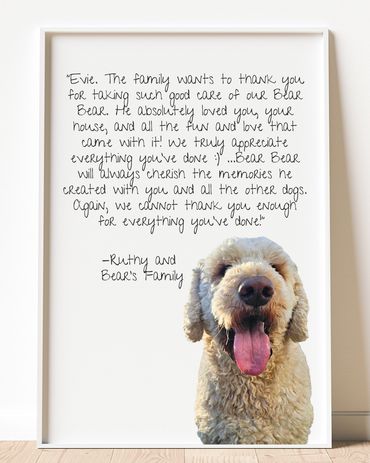 "Evie. The family wants to thank you
for taking such good care of our Bear
Bear. He absolutely loved you, your
house, and all the fun and love that
came with it! We truly appreciate
everything you've done :) ...Bear Bear
will always cherish the memories he
created with you and all the other dogs.
Again, we cannot thank you enough
for everything you've done!"
-Ruthy and
Bear's Family